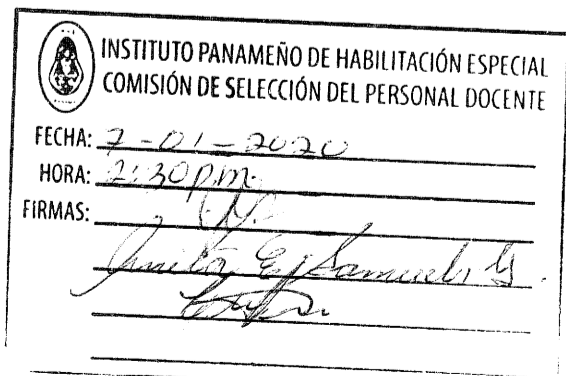 INSTITUTO PANAMEÑO DE HABILITACIÓN ESPECIAL
COMISIÓN DE SELECCIÓN DEL PERSONAL DOCENTE
FECHA: 7-01-2020
HORA: 2:30 p.m.
FIRMAS: